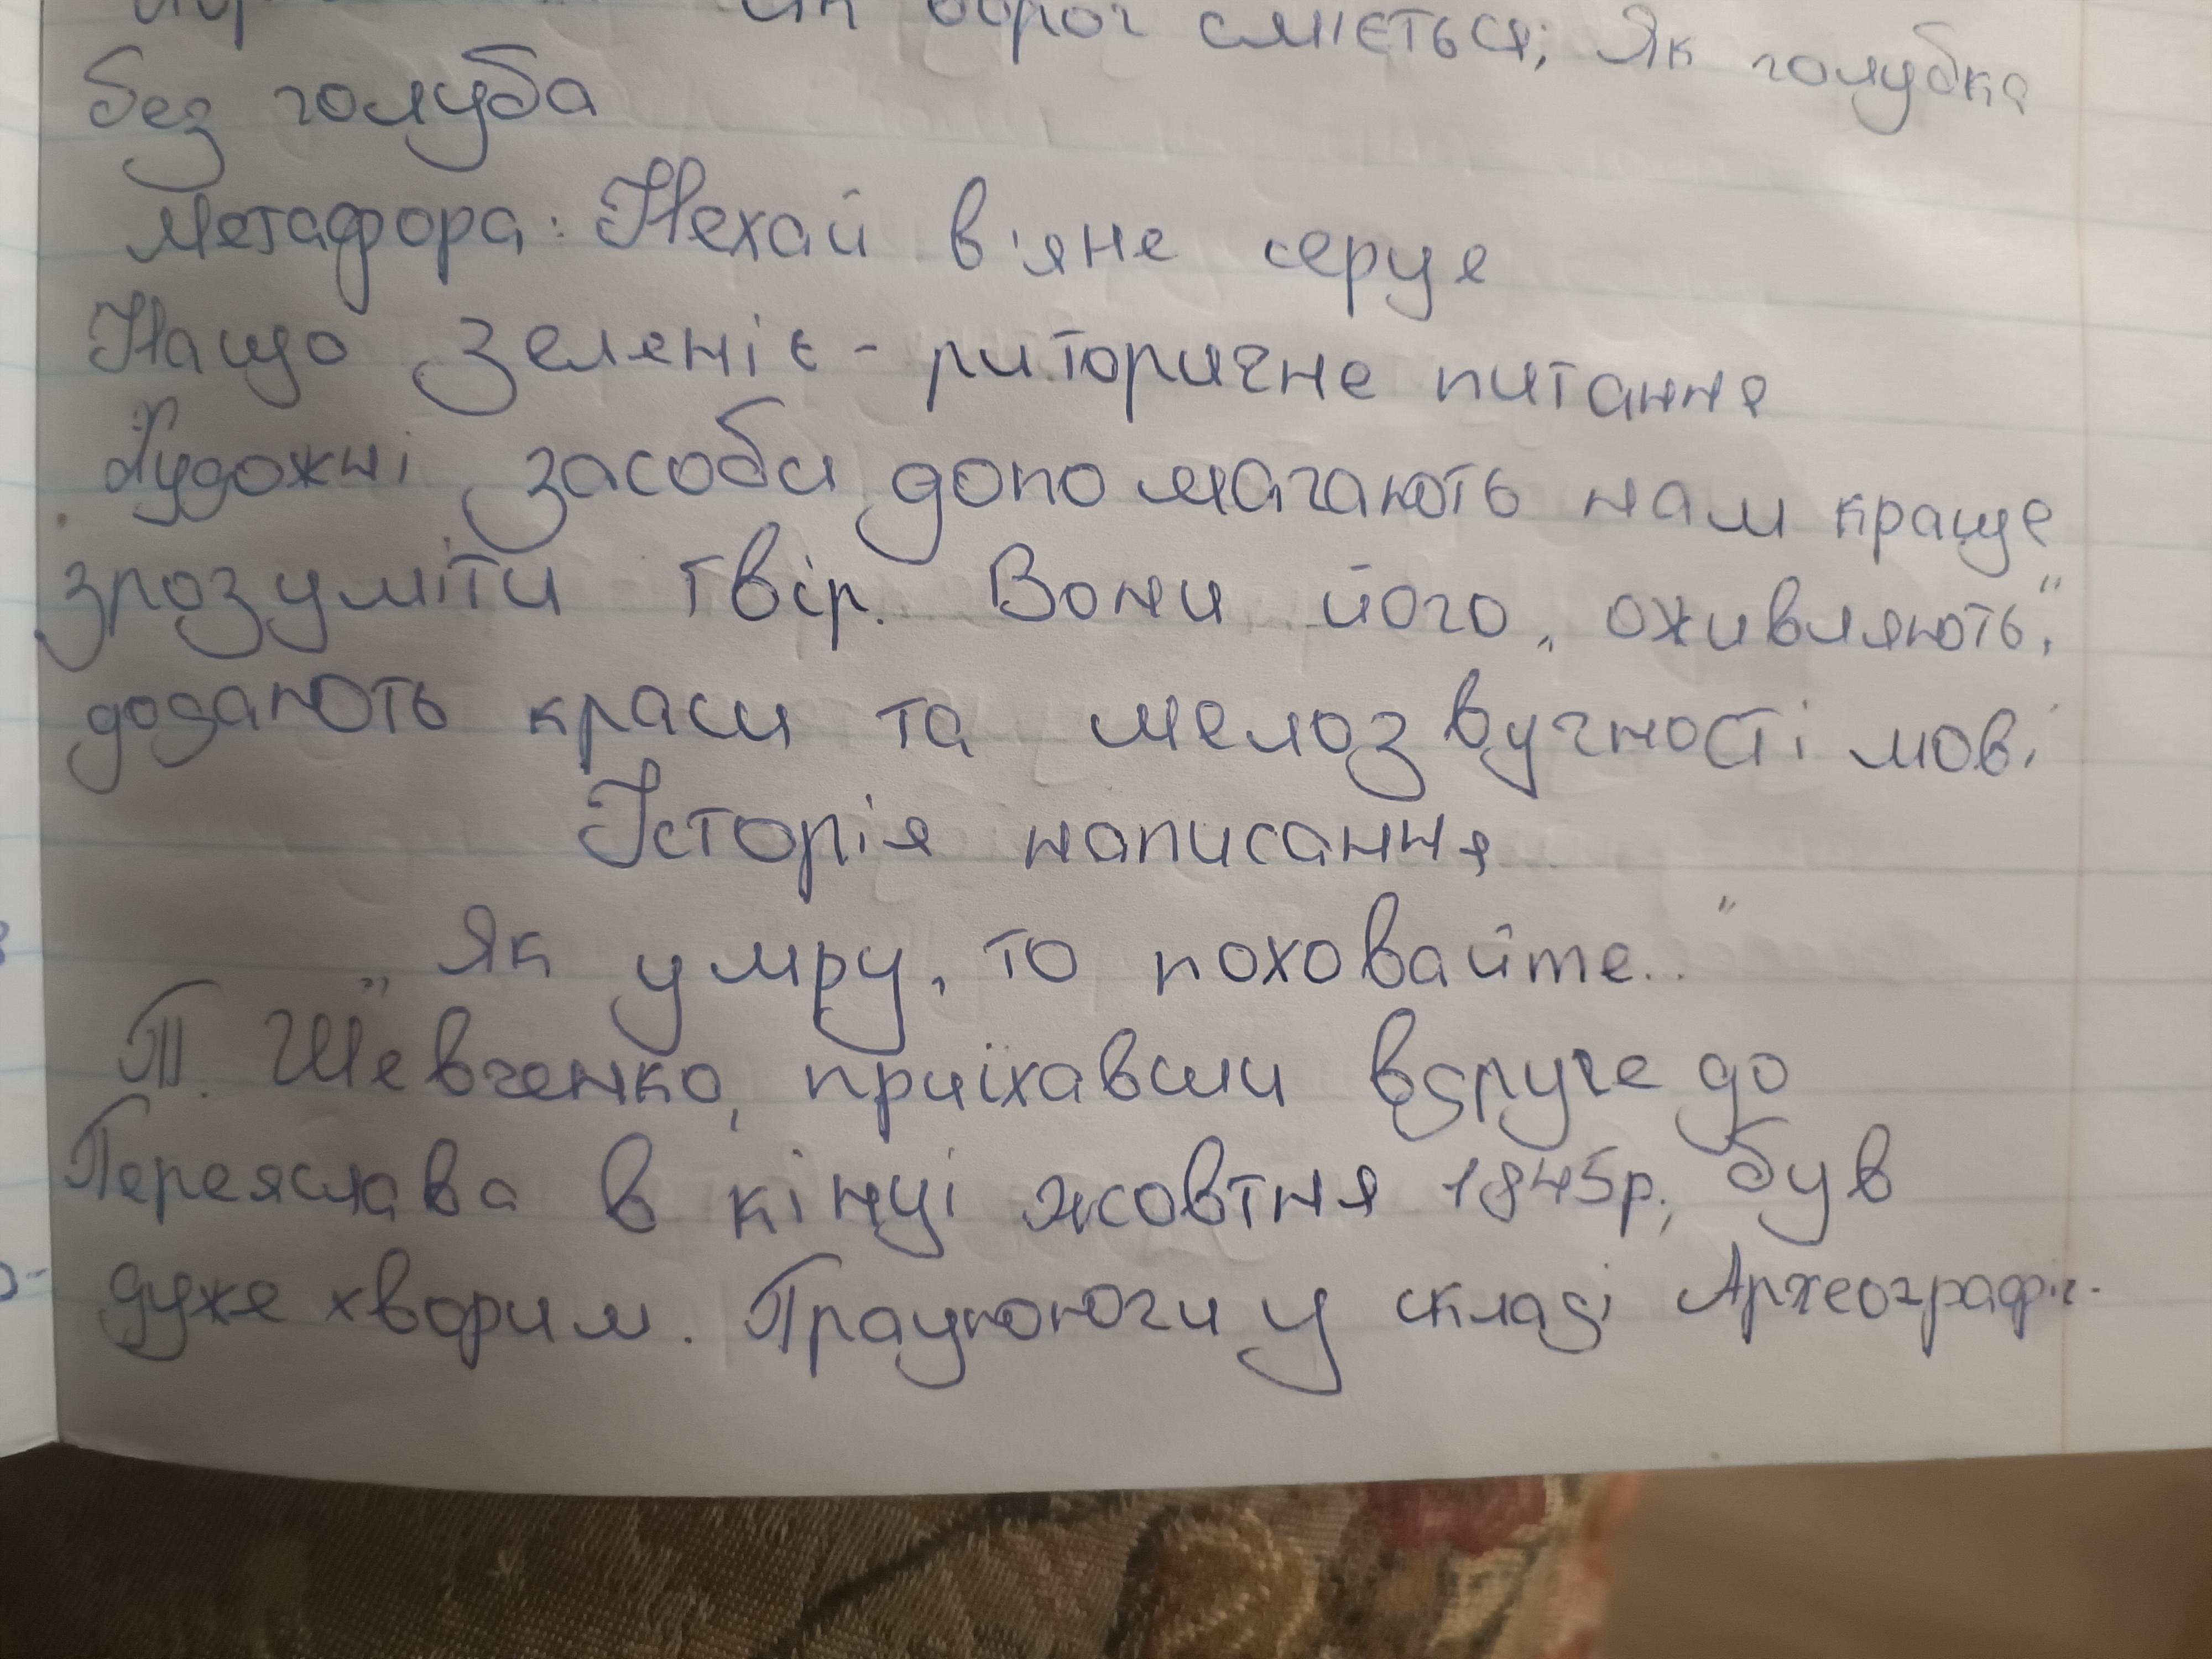 ворог сміється; Як голубка
без голуба
Метафора: Нехай в'яне серце
Нащо зеленіє - риторичне питання
Художні засоби допомагають нам краще
зрозуміти твір. Вони його „оживляють",
додають краси та мелозвучності мові
Історія написання
„Як умру, то поховайте..."
Т. Шевченко, приїхавши вдруге до
Переяслава в кінці жовтня 1845р., був
дуже хворим. Працюючи у складі Археографіч-